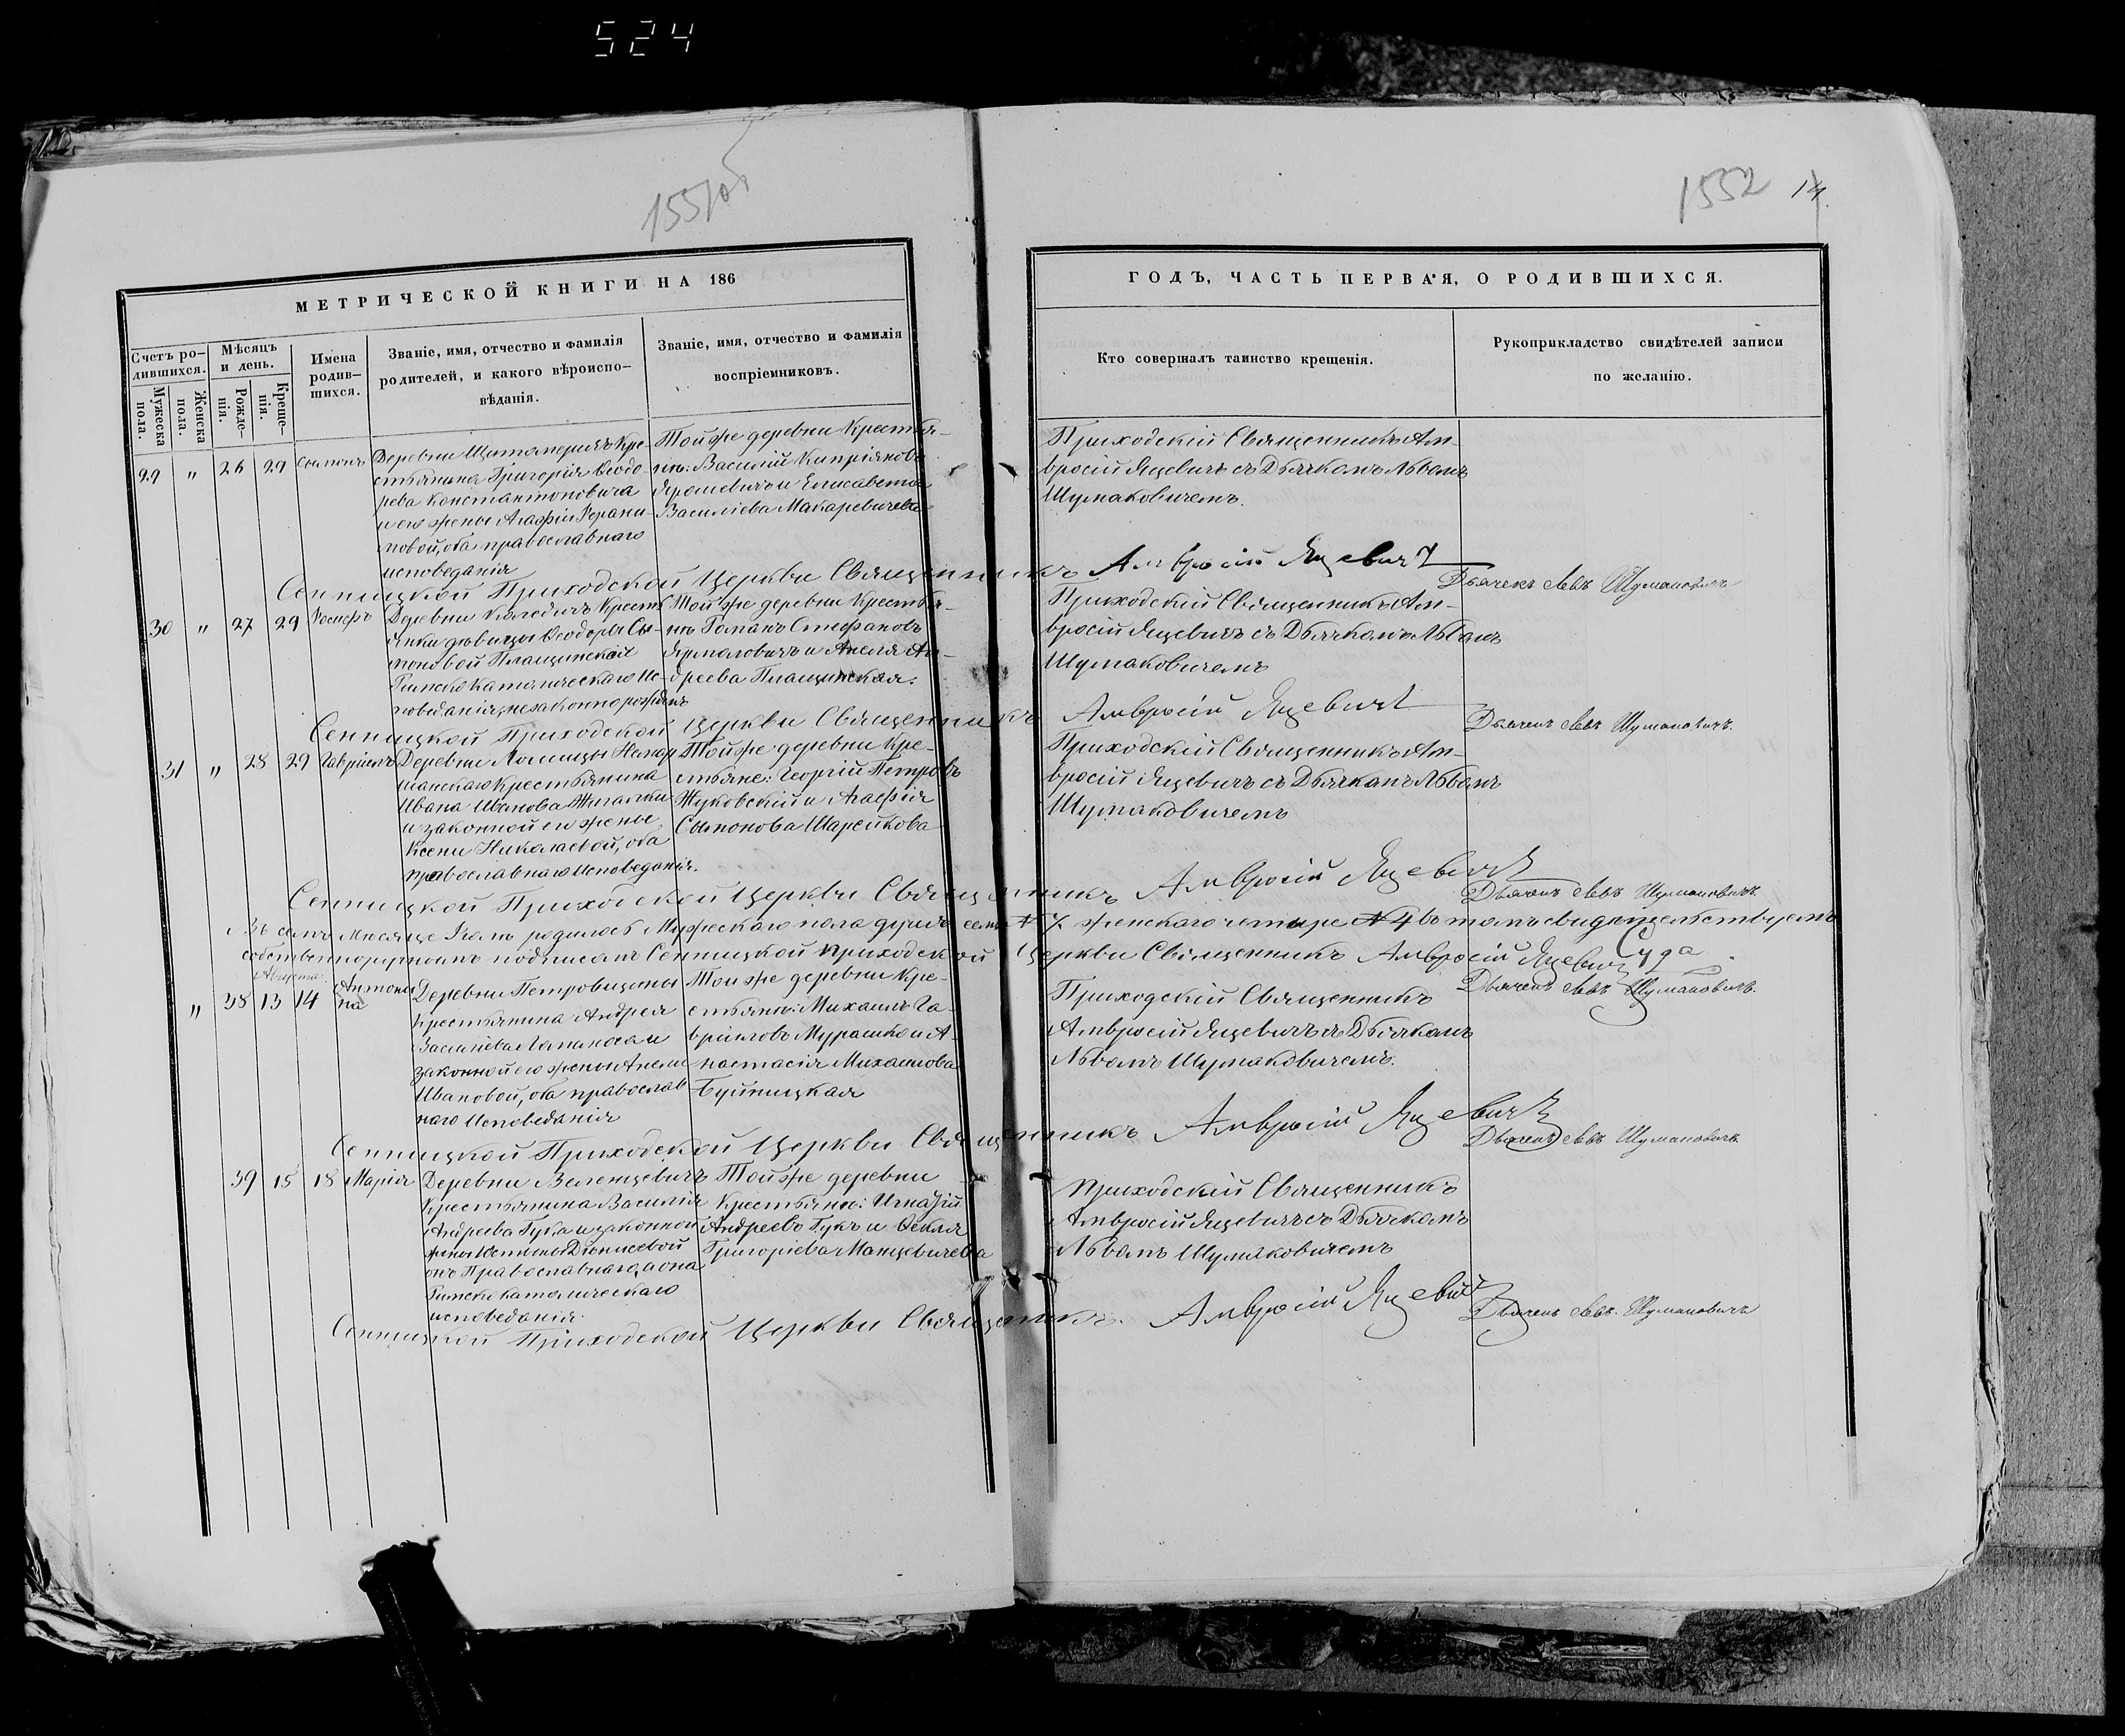 524
155/об
1552 14.
МЕТРИЧЕСКОЙ КНИГИ НА 186
ГОДЪ, ЧАСТЬ ПЕРВАЯ, О РОДИВШИХСЯ.
Счетъ ро-
дившихся.
Мужеска
пола.
Женска
пола.
Мѣсяцъ
и день.
Рожде-
нія.
Креще-
нія.
Имена
родив-
шихся.
Званіе, имя, отчество и фамилія
родителей, и какого вѣроиспо-
вѣданія.
Званіе, имя, отчество и фамилія
воспріемниковъ.
Кто совершалъ таинство крещенія.
Рукоприкладство свидѣтелей записи
по желанію.
29 " 26 29 Сымонъ
Деревни Щитомеричъ Кре-
стьянина Григорія Ѳеодо-
рева Константоновича
и его жены Агафіи
оба православнаго
исповеданія
Той же деревни Крестья-
не: Василій Кипріяновъ
Ярошевичъ и Елисавета
Василіева Макаревичева
Приходскій Священникъ Ам-
вросій Яцевичъ съ Дьячкомъ Львомъ
Шумаковичемъ.
Сенницкой Приходской Церкви Священникъ Амвросій Яцевичъ
Дьячекъ Левъ Шумаковичъ
30 " 27 29 Іосифъ
Деревни Колядичъ Кресть
янки дѣвицы Ѳеодоры Сы-
моновой Плащинской
Римско Католическаго Ис-
поведанія, незаконнорожденъ
Той же деревни Крестья-
не Романъ Стефановъ
Ярмоловичъ и Анеля Ан-
дреева Плащинская.
Приходскій Священникъ Ам-
вросій Яцевичъ съ Дьячкомъ Львомъ
Шумаковичемъ
Сенницкой Приходской Церкви Священникъ Амвросій Яцевичъ
Дьячекъ Левъ Шумаковичъ.
31 " 28 29 Гавріилъ
Деревни Лошицы
Крестьянина
Ивана Иванова Жигалки
и законной его жены
Ксени Николаевой, оба
православнаго Исповеданія.
Той же деревни Кре-
стьяне: Георгій Петровъ
Жуковскій и Агафія
Сымонова Шарейкова
Приходскій Священникъ Ам-
вросій Яцевичъ съ Дьячкомъ Львомъ
Шумаковичемъ
Сенницкой Приходской Церкви Священникъ Амвросій Яцевичъ
Дьячекъ Левъ Шумаковичъ
Въ семъ Месяце Іюлѣ родилось Мужескаго пола душъ семь №7. женскаго четыре №4 въ томъ свидетельствуемъ
собственноручнымъ подписомъ Сенницкой Приходской Церкви Священникъ Амвросій Яцевичъ
Дьячекъ Левъ Шумаковичъ.
Августа
" 38 13 14 Антони
на
Деревни Петровщины
Крестьянина Андрея
Василіева и
законной его жены Анели
Ивановой, оба православ
наго Исповеданія
Той же деревни Кре-
стьяне: Михаилъ Га-
вріиловъ Мурашко и А-
настасія Михаилова
Буйницкая
Приходскій Священникъ
Амвросій Яцевичъ съ Дьячкомъ
Львомъ Шумаковичемъ.
Сенницкой Приходской Церкви Священникъ Амвросій Яцевичъ
Дьячекъ Левъ Шумаковичъ
39 15 18 Марія
Деревни Зеленцевичъ
Крестьянина Василія
Андреева Гука и законной
жены Юстины Діонисевой
онъ Православнаго, а она
Римскокатолическаго
исповеданія.
Той же деревни
Крестьяне: Игнатій
Андреевъ Гукъ и Ѳекла
Григоріева Манцевичева
Приходскій Священникъ
Амвросій Яцевичъ съ Дьячкомъ
Львомъ Шумаковичемъ
Сенницкой Приходской Церкви Священникъ. Амвросій Яцевичъ
Дьячекъ Левъ. Шумаковичъ